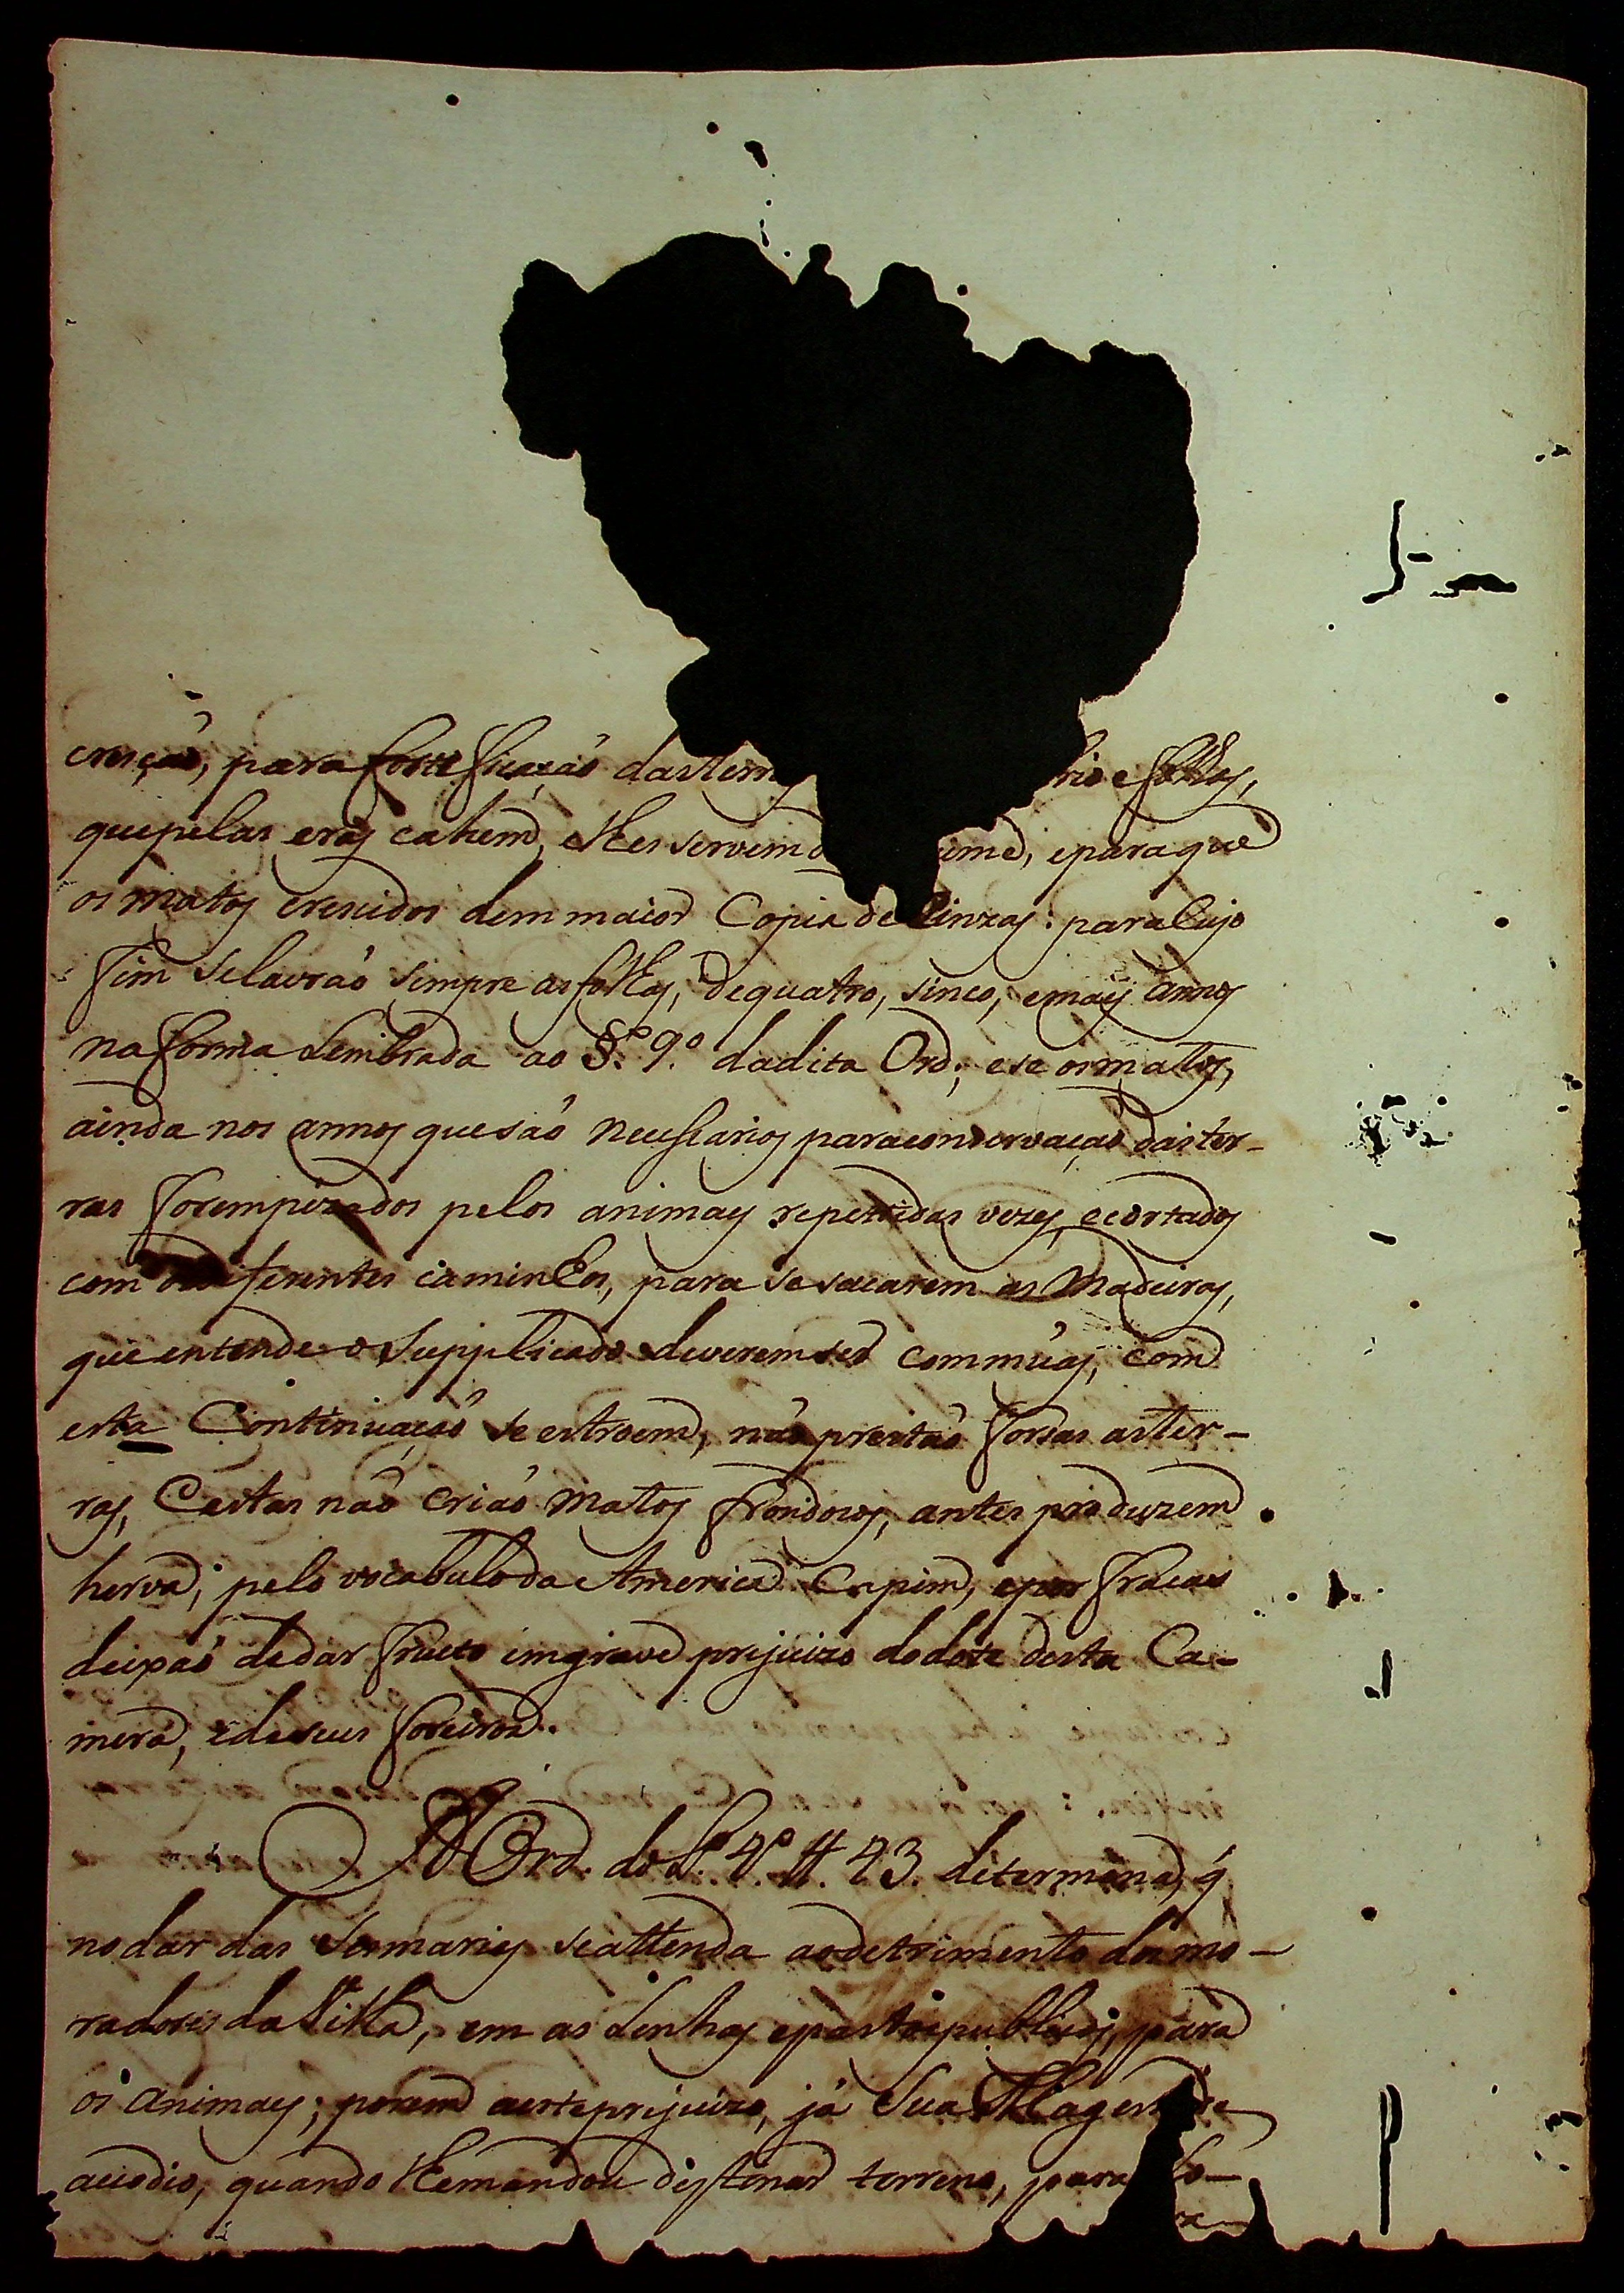 cresção, para fortificação das terras rio e folhas,
que pelas eras cahem, e lhes servem d ume, e para que
os matos crescidos dem maior Copia de Cinzas: para Cujo
fim se lavrão sempre as folhas, de quatro, sinco, e mais annos
na forma Lembrada ao §.º 9.º da dita Ord.; e se os matos,
ainda nos annos que são necessarios para conservação das ter-
ras forem pizados pelos animaes repettidas vezes, e cortados
com differentes caminhos, para se sacarem as Madeiras,
que entende o Supplicado deverem ser commũas, com
esta Continuação se estroem, não prestão forsas as ter-
ras, e estas não Crião Matos frondosos, antes produzem
herva, pelo vocabulo da America Capim, e por fracas
deixão de dar fructo em grave prejuizo do dote desta Ca-
mera, e de seus foreiros.
A Ord. do L.º 4.º tt. 43. determina, q̃
no dar das Sesmarias se attenda ao detrimento dos mo-
radores da Villa, em as Lenhas e pastos publicos, para
os animaes; porem a este prejuizo, já Sua Magestade
acodio, quando lhe mandou distinar terreno, para Lo-